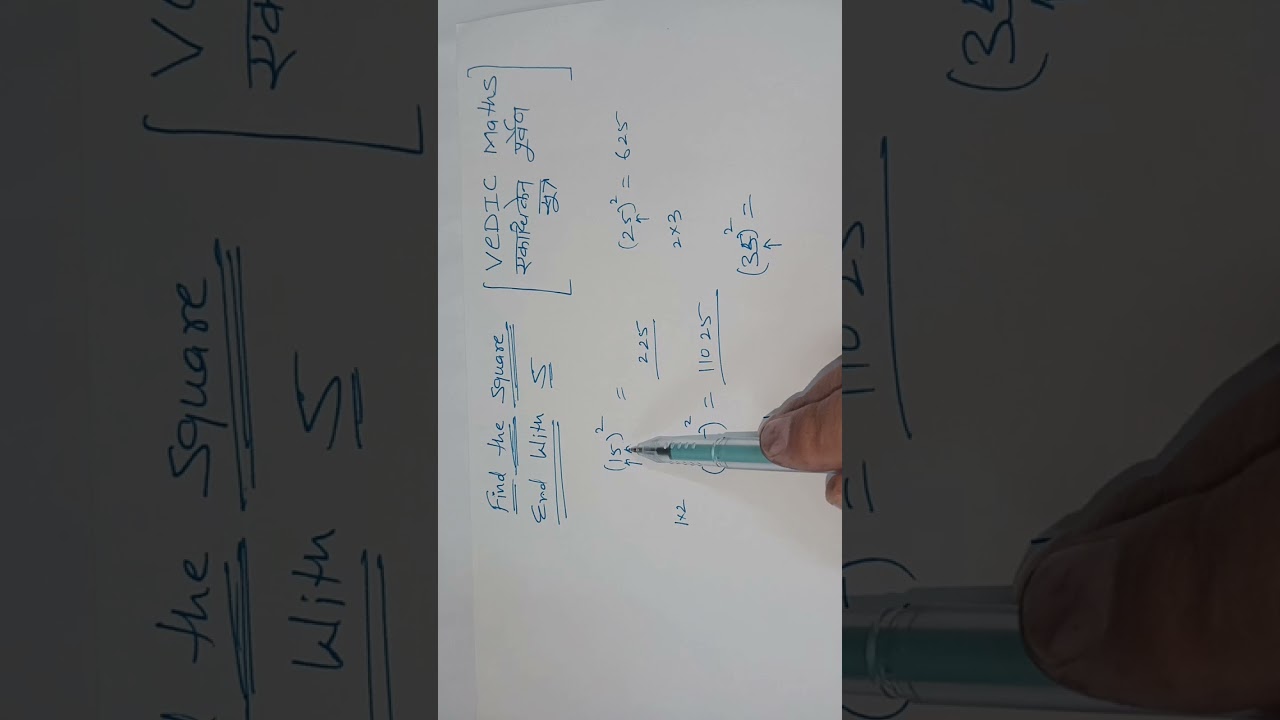 Find the Square
End With 5
[VEDIC Maths
एकाधिकेन पूर्वेण
सूत्र]
(15)² =
225
1×2
)² = 11025
(25)² = 625
2×3
(35)² =